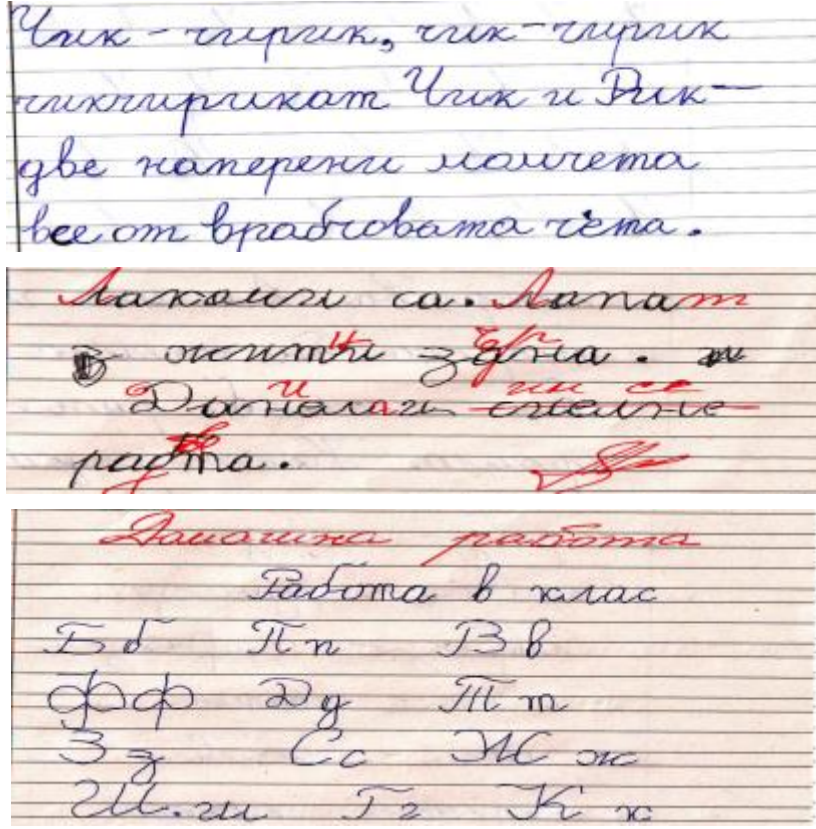 Чик - чирик, чик-чирик
чикчирикат Чик и Рик-
две наперени момчета
все от врабчовата чета.
Лакоми са.
зърна.
Домашна работа
Работа в клас
Б б П п В в
Ф ф Д д Т т
З з С с Ж ж
Ш ш Г г К к